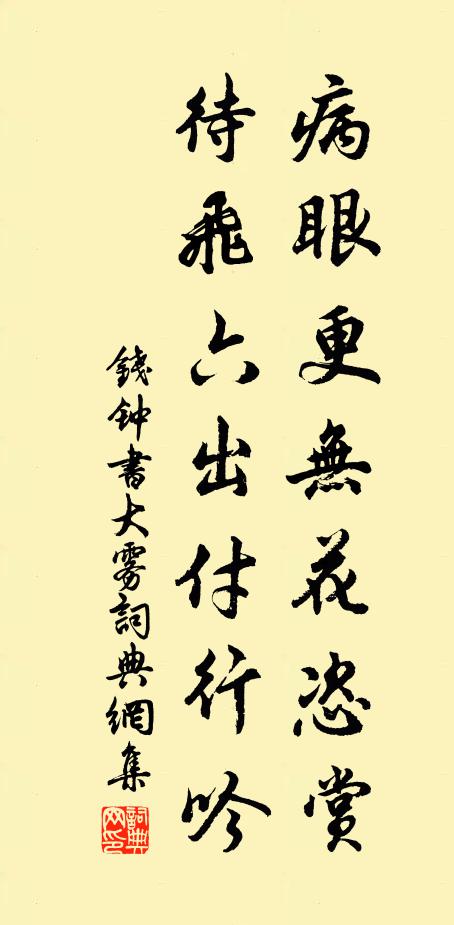 病眼更無花恣賞
待飛六出付行吟
錢鐘書大雾詞典網集
詞典网印